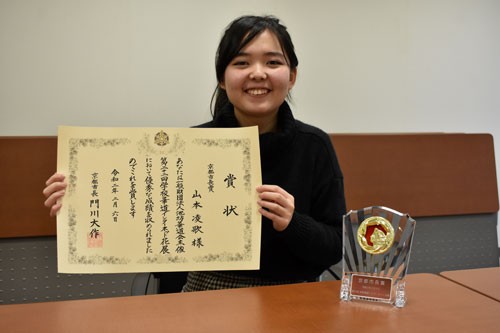 賞状
京都市長賞
山本凌歌様
あなたは一般財団法人池坊華道会主催
第二十一回学校華道インターネット花展
において優秀な成績を収められました
のでこれを賞します
令和二年二月六日
京都市長 門川大作
京都市長賞